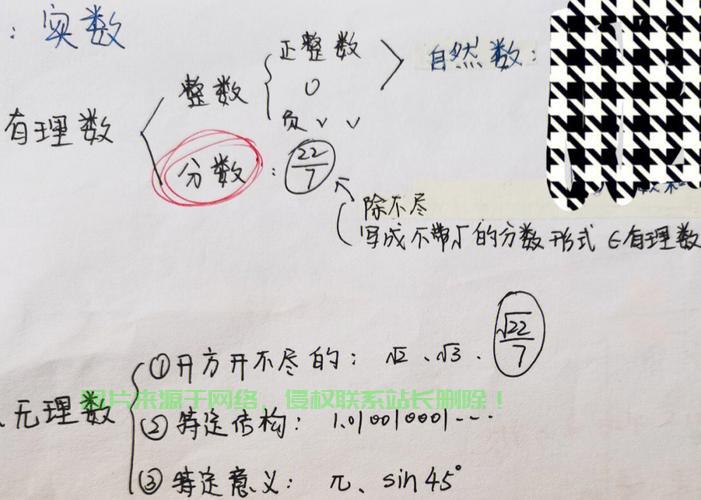 : 实数
有理数
整数
正整数
0
负 ˅ ˅
自然数:
分数 : 22/7
除不尽
写成不带√的分数形式 ∈有理数
无理数
①开方开不尽的: √2、√3、√22/7
图片来源于网络，侵权联系站长删除！
②特定结构: 1.010010001…
③特定意义: π、sin45°